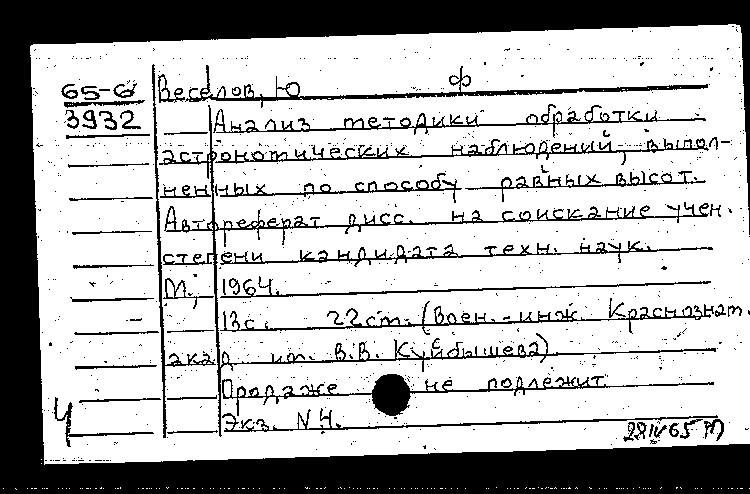 65-6 Веселов, Ю ф
3932 Анализ методики обработки
астрономических наблюдений, выпол-
ненных по способу равных высот.
Автореферат дисс. на соискание учен.
степени кандидата техн. наук.
М., 1964.
13с. 22см. (Воен.-инж. Краснознам.
акад им. В.В. Куйбышева)
Продаже не подлежит
Экз. N 4.
Ч
28IV65 М